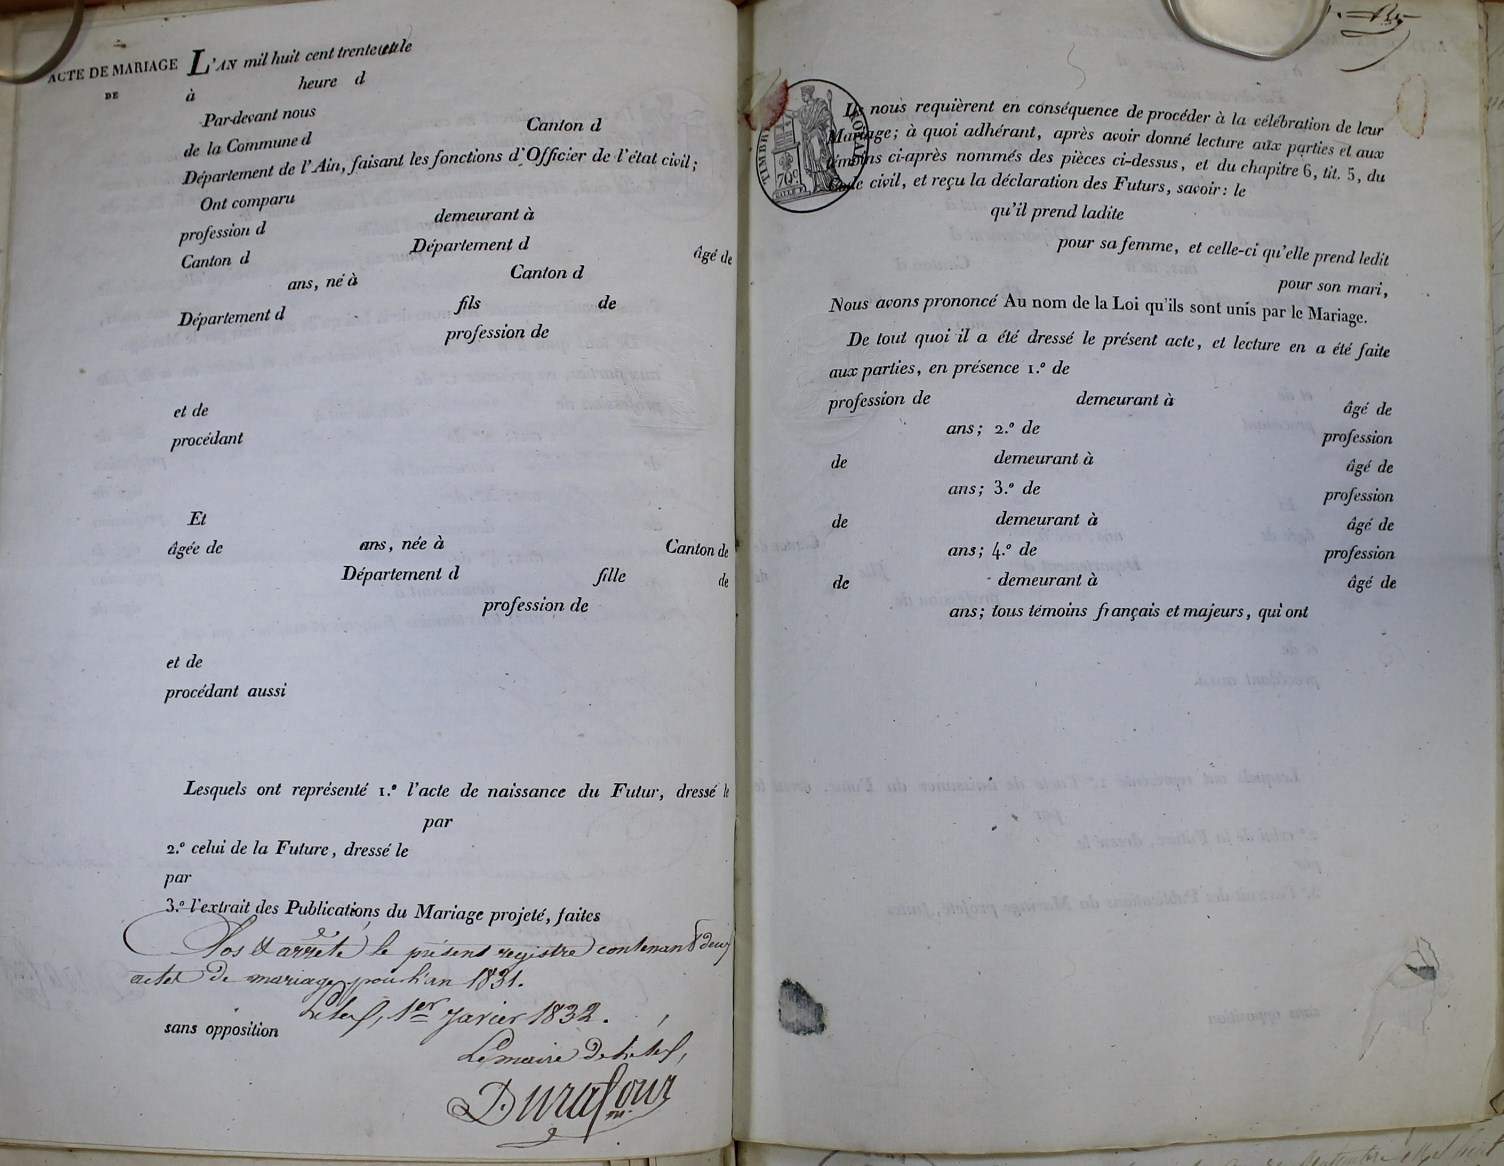 ACTE DE MARIAGE
DE
L'AN mil huit cent trente et un le
à heure d
Par-devant nous
de la Commune d Canton d
Département de l'Ain, faisant les fonctions d'Officier de l'état civil;
Ont comparu
profession d demeurant à
Canton d Département d âgé de
ans, né à Canton d
Département d fils de
profession de
et de
procédant
Et
âgée de ans, née à Canton de
Département d fille de
profession de
et de
procédant aussi
Lesquels ont représenté 1.º l'acte de naissance du Futur, dressé le
par
2.º celui de la Future, dressé le
par
3.º l'extrait des Publications du Mariage projeté, faites
Clos & arrêté le présent registre contenant deux
actes de mariage pour l'an 1831.
1er Janvier 1832.
sans opposition
Le maire de
Durafour
Ils nous requièrent en conséquence de procéder à la célébration de leur
Mariage; à quoi adhérant, après avoir donné lecture aux parties et aux
témoins ci-après nommés des pièces ci-dessus, et du chapitre 6, tit. 5, du
Code civil, et reçu la déclaration des Futurs, savoir: le
qu'il prend ladite
pour sa femme, et celle-ci qu'elle prend ledit
pour son mari,
Nous avons prononcé Au nom de la Loi qu'ils sont unis par le Mariage.
De tout quoi il a été dressé le présent acte, et lecture en a été faite
aux parties, en présence 1.º de
profession de demeurant à âgé de
ans; 2.º de profession
de demeurant à âgé de
ans; 3.º de profession
de demeurant à âgé de
ans; 4.º de profession
de demeurant à âgé de
ans; tous témoins français et majeurs, qui ont
TIMBRE ROYAL
70c